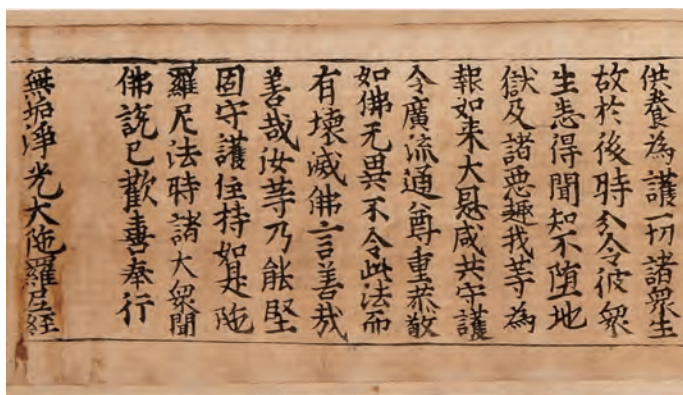 供養為護一切諸衆生
故於後時分令彼衆
生悉得聞知不墮地
獄及諸惡趣我等為
報如来大恩咸共守護
令廣流通尊重恭敬
如佛无異不令此法而
有壞滅佛言善哉
善哉汝等乃能堅
固守護住持如是陁
羅尼法時諸大衆聞
佛說已歡喜奉行
無垢淨光大陁羅尼経